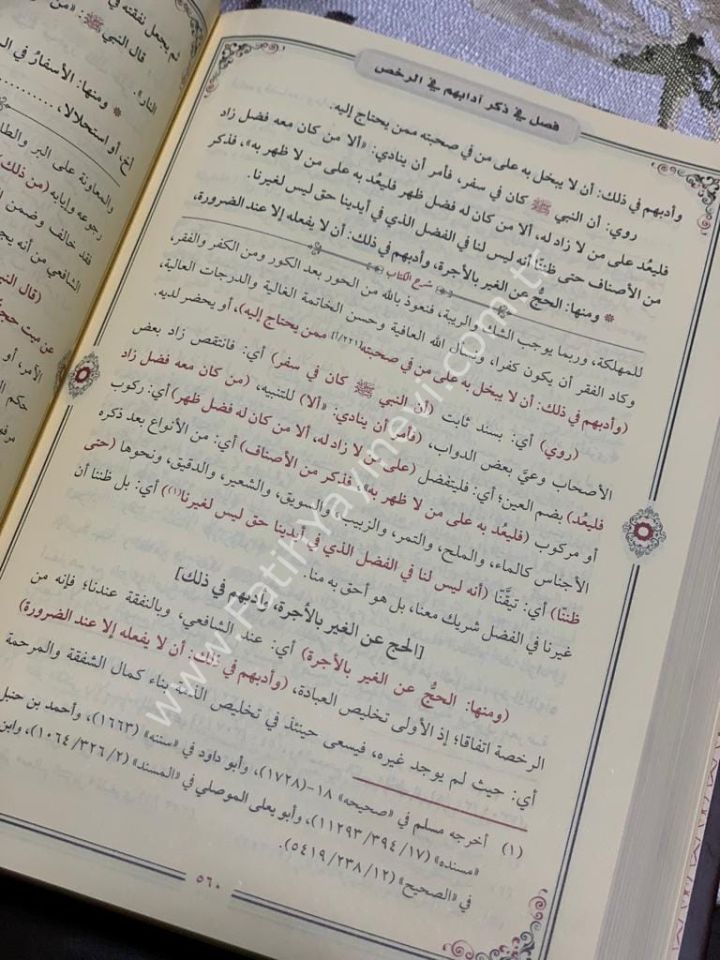 فصل في ذكر آدابهم في الرخص
وأدبهم في ذلك: أن لا يبخل به على من في صحبته ممن يحتاج إليه.
روي: أن النبي ﷺ كان في سفر، فأمر أن ينادي: «ألا من كان معه فضل زاد
فليعد على من لا زاد له، ألا من كان له فضل ظهر فليُعد به على من لا ظهر به»، فذكر
من الأصناف حتى ظننّا أنه ليس لنا في الفضل الذي في أيدينا حق ليس لغيرنا.
* ومنها: الحجُّ من الغير بالأجرة، وأدبهم في ذلك: أن لا يفعله إلا عند الضرورة،
شرح الكتاب
للمهلكة، وربما يوجب الشك والريبة، فنعوذ بالله من الحور بعد الكور ومن الكفر والفقر،
وكاد الفقر أن يكون كفرا، ونسأل الله العافية وحسن الخاتمة الغالية والدرجات العالية.
(وأدبهم في ذلك: أن لا يبخل به على من في صحبته[٢٢١/أ] ممن يحتاج إليه)، أو يحضر لديه.
(روي) أي: بسند ثابت (أن النبي ﷺ كان في سفر) أي: فانتقص زاد بعض
الأصحاب وعيَّ بعض الدواب، (فأمر أن ينادي: «ألا) للتنبيه، (من كان معه فضل زاد
فليعُد) بضم العين؛ أي: فليتفضل (على من لا زاد له، ألا من كان له فضل ظهر) أي: ركوب
أو مركوب (فليعُد به على من لا ظهر به»، فذكر من الأصناف) أي: من الأنواع بعد ذكره
الأجناس كالماء، والملح، والتمر، والزبيب، والسويق، والشعير، والدقيق، ونحوها (حتى
ظننا) أي: تيقّنّا (أنه ليس لنا في الفضل الذي في أيدينا حق ليس لغيرنا(١)) أي: بل ظننا أن
غيرنا في الفضل شريك معنا، بل هو أحق به منا.
[الحج عن الغير بالأجرة، وأدبهم في ذلك]
(ومنها: الحجُّ عن الغير بالأجرة) أي: عند الشافعي، وبالنفقة عندنا؛ فإنه من
الرخصة اتفاقا؛ إذ الأولى تخليص العبادة، (وأدبهم في ذلك: أن لا يفعله إلا عند الضرورة)
أي: حيث لم يوجد غيره، فيسعى حينئذ في تخليص الذمة بناء كمال الشفقة والمرحمة
(١) أخرجه مسلم في «صحيحه» ١٨-(١٧٢٨)، وأبو داود في «سننه» (١٦٦٣)، وأحمد بن حنبل
«مسنده» (١٧/ ٣٩٤/ ١١٢٩٣)، وأبو يعلى الموصلي في «المسند» (٢/ ٣٢٦/ ١٠٦٤)، وابن
في «الصحيح» (١٢/ ٢٣٨/ ٥٤١٩).
٥٦٠
لم يجعل نفقته في
قال النبي ﷺ: «من
النار».
* ومنها: الأسفارُ في
لخ، أو استحلالا،
والمعاونة على البر
رجوعه وإيابه (من ذلك)
لقد خالف وضمن
الشافعي من أنه
(قال
عن ميت
الأمر، أو
حكم
www.FatihYayinevi.com.tr